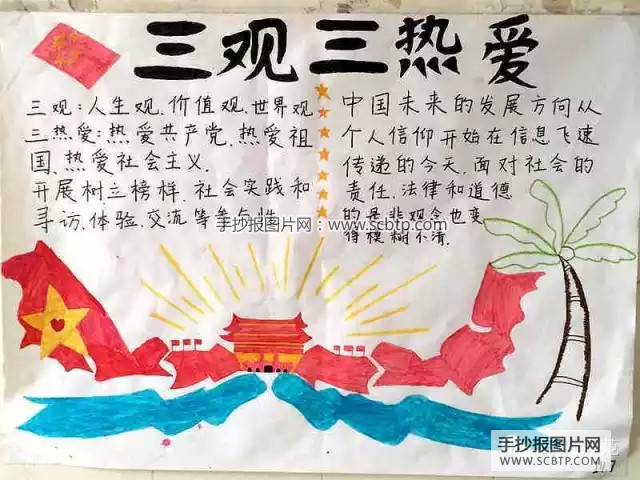 三观三热爱
三观:人生观、价值观、世界观
三热爱:热爱共产党、热爱祖
国、热爱社会主义.
开展树立榜样、社会实践和
寻访、体验、交流等参与性
中国未来的发展方向从
个人信仰开始在信息飞速
传递的今天,面对社会的
责任,法律和道德
的是非观念也变
得模糊不清.
手抄报图片网:www.scbtp.com
手抄报图片网
WWW.SCBTP.COM